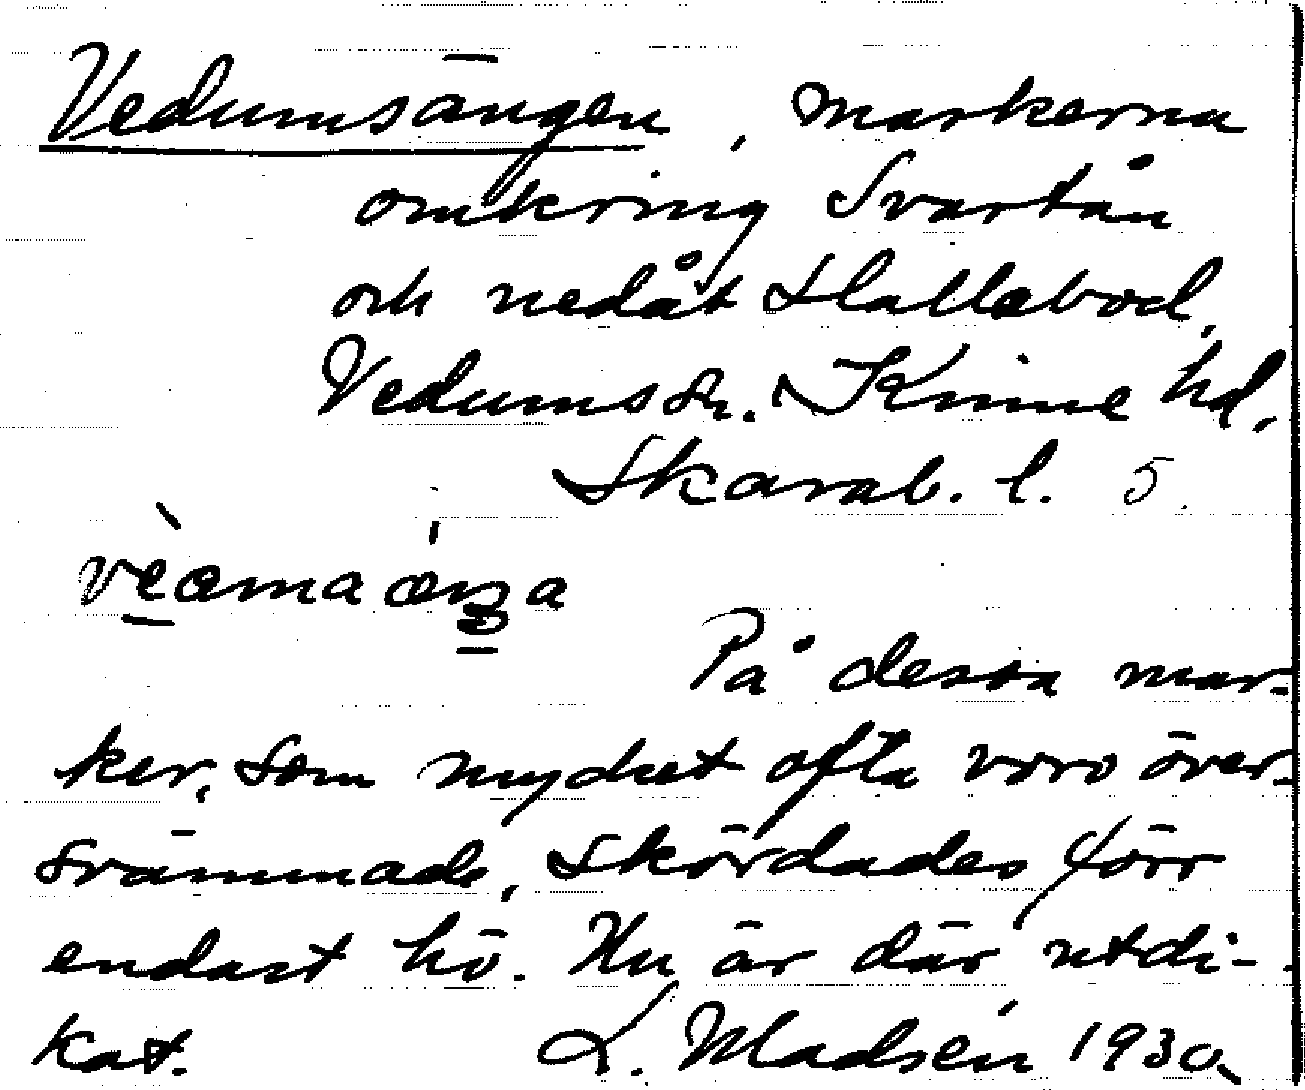 Vedumsängen, markerna
omkring Svartån
och nedåt Hallebod,
Vedums sn. Kinne hd,
Skarab. l. 5.
På dessa mar-
ker, som mycket ofta voro över-
svämmade, skördades förr
endast hö. Nu är där utdi-
kat. L. Madsén 1930